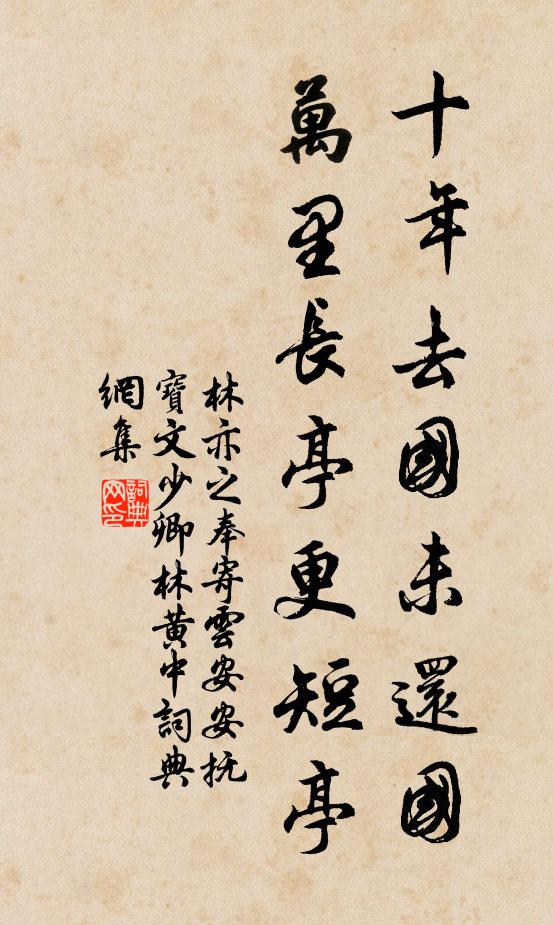 十年去國未還國
萬里長亭更短亭
林亦之奉寄雲安安抚
寶文少卿林黃中詞典
網集
詞典網印